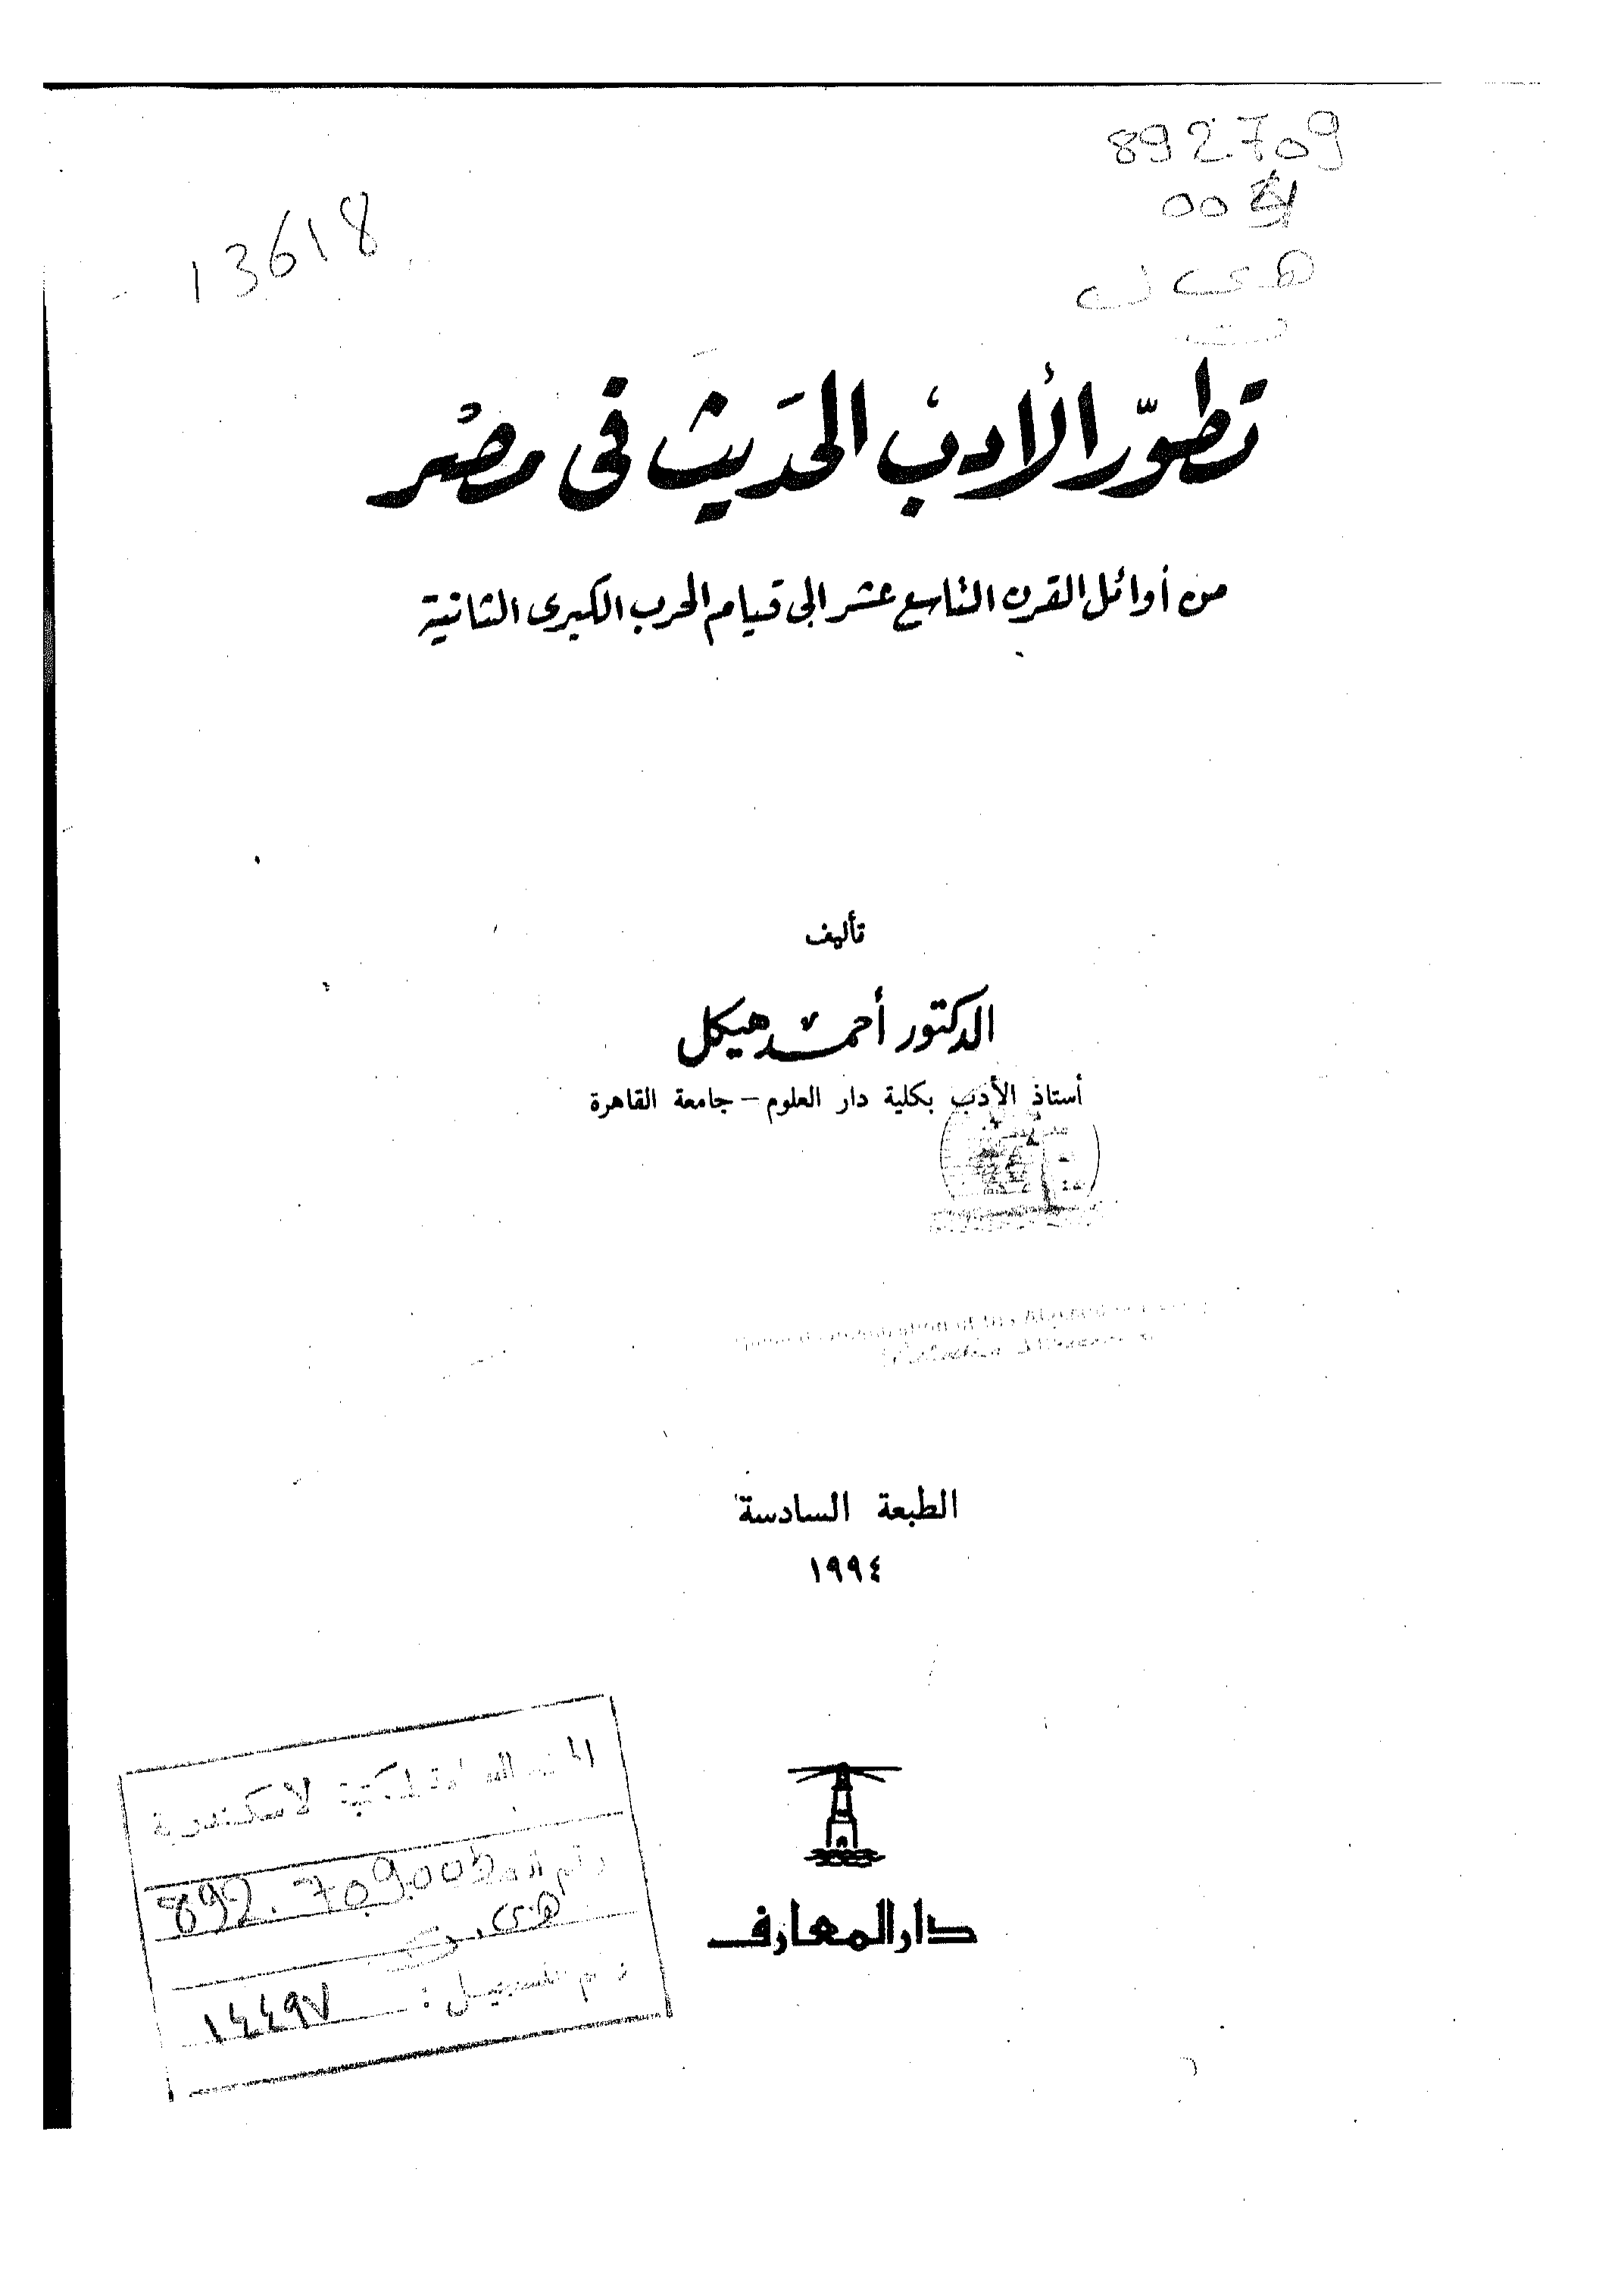 892709
13618
تطوّر الأدب الحَديث في مصْر
من أوائل القرن التاسع عشر إلى قيام الحرب الكبرى الثانية
تأليف
الدكتور أحمد هيكل
أستاذ الأدب بكلية دار العلوم - جامعة القاهرة
الطبعة السادسة
١٩٩٤
دار المعارف
892.709
هـى
التسجيل :
١٤٤٩٧